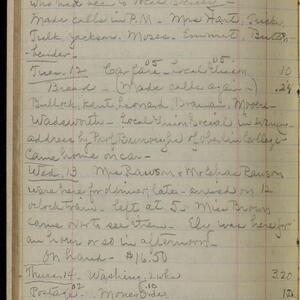 who has see to
Made calls in P.M - Mrs Hart,
Tulk, Jackson, Moses, Emmert,
05 05
Tues. 12 Car fare - Local Union 10
Bread - (Made calls again -)
Bullock, Kent, Leonard, Moses
Wadsworth - Local Union Social in evening
address by Prof Burroughs of Oberlin College
Came home on car -
Wed. 13 Mrs Rawson & Mother Rawson
were here for dinner, late - arrived on 12
oclock train. left at 5 - Miss Brown
came over to see them. was here for
an hour or so in afternoon -
on hand - $16.50
Thurs. 14 - Washing, 2 wks 3.20
02 10
Postage - Money Order 12